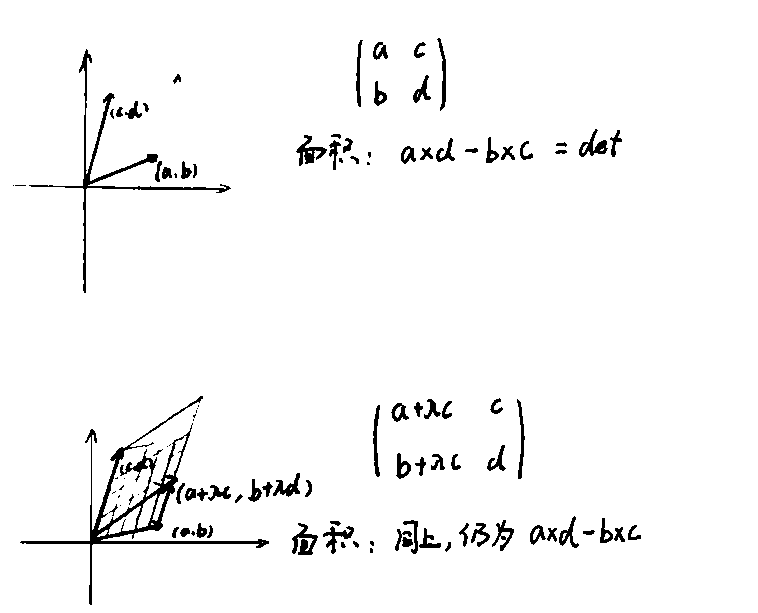 (c,d)
(a,b)
a c
b d
面积: a×d-b×c = det
(c,d)
(a+λc, b+λd)
(a,b)
a+λc c
b+λc d
面积: 同上, 仍为 a×d-b×c